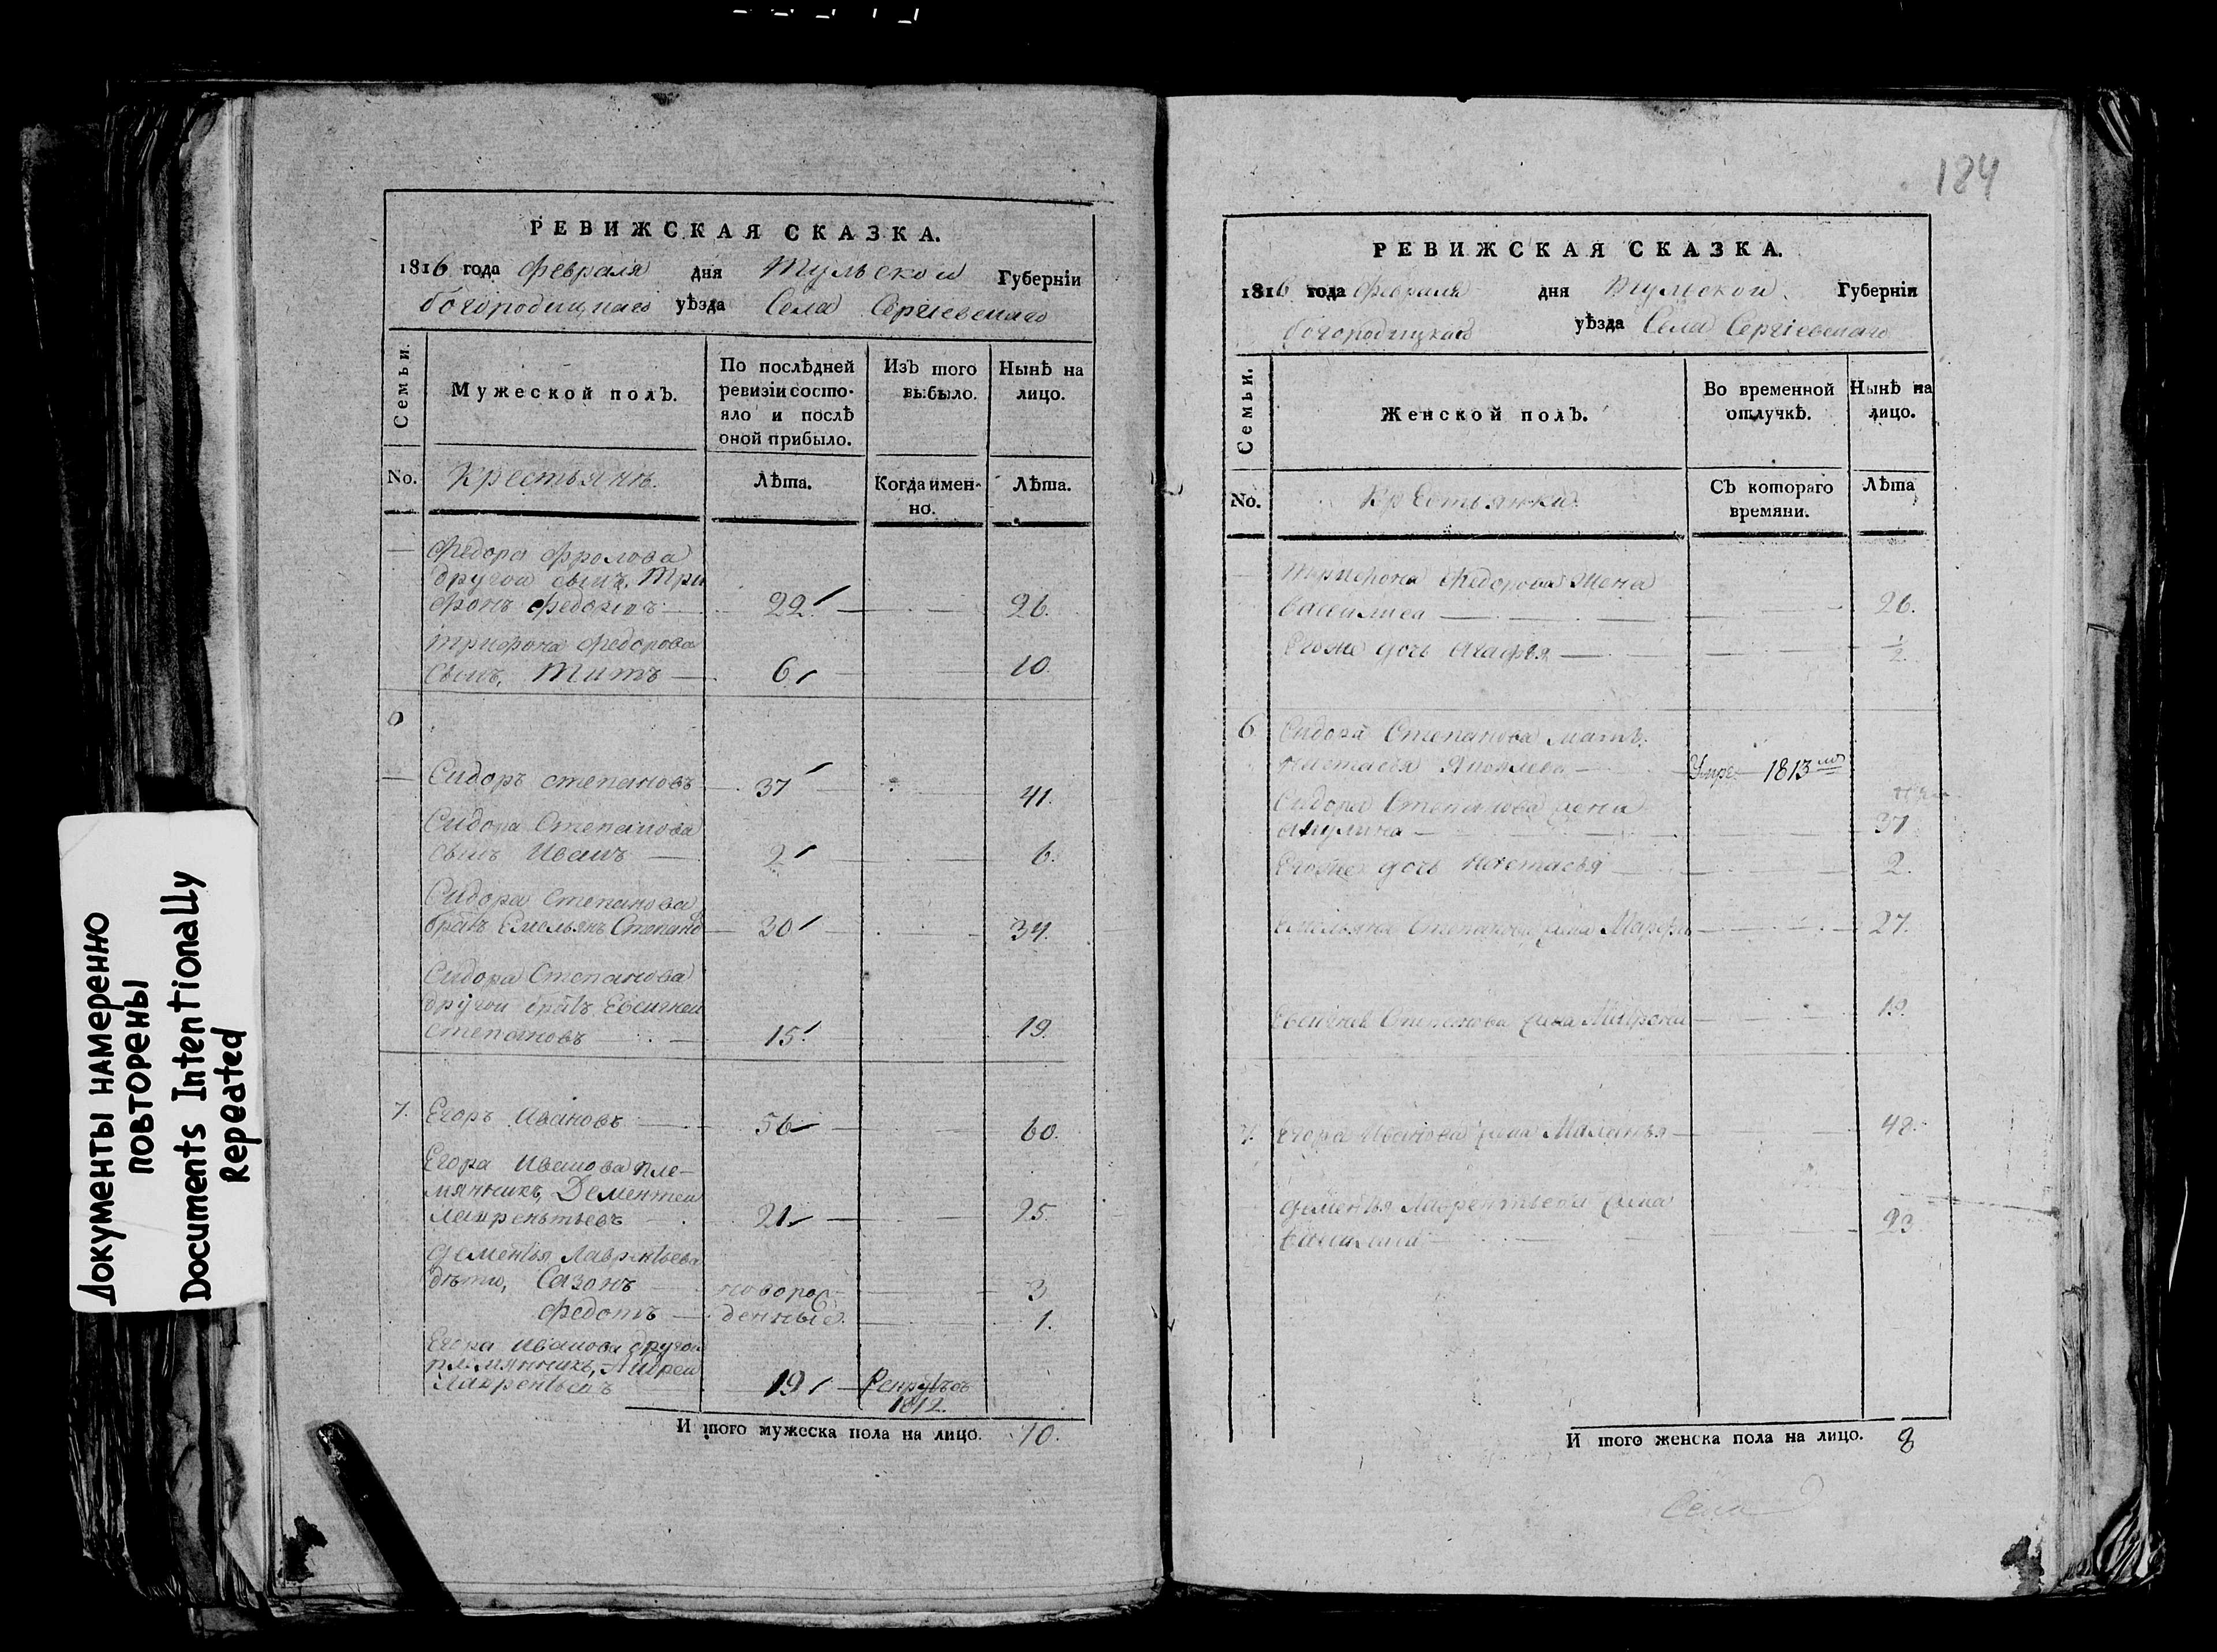 Документы намеренно
повторены
Documents Intentionally
Repeated
РЕВИЖСКАЯ СКАЗКА.
1816 года февраля дня Тульской Губерніи
богородицкаго уѣзда Села Сергіевскаго
Семьи.
Мужеской полъ.
По послѣдней
ревизіи состо-
яло и послѣ
оной прибыло.
Изъ того
выбыло.
Нынѣ на
лицо.
No. Крестьянъ. Лѣта. Когда имен-
но. Лѣта.
Федора Фролова
другой сынъ, Три
фонъ Федоровъ 22 26.
Трифона Федорова
сынъ, Титъ 6 10.
Сидоръ степановъ 37 41.
Сидора Степанова
сынъ Иванъ 2 6.
Сидора Степанова
братъ Емельянъ Степано 30 34.
Сидора Степанова
другой братъ, Евсигней
степановъ 15 19.
7. Егоръ Ивановъ 56 60.
Егора Иванова пле-
мянникъ, Дементей
лаврентьевъ 21 25.
Дементья Лаврентьева
дѣти, Сазонъ новорож- 3
Федотъ денные. 1.
Егора Иванова другой
племянникъ, Андрей
Лаврентьевъ 19 Рекрутъ въ
1812.
И того мужеска пола на лицо. 10.
184
РЕВИЖСКАЯ СКАЗКА.
1816 года февраля дня Тульской Губерніи
богородицкаго уѣзда Села Сергіевскаго
Семьи.
Женской полъ.
Во временной
отлучкѣ.
Нынѣ на
лицо.
No. Крестьянки. Съ котораго
времяни. Лѣта
Трифона Федорова жена
василиса 26.
Егоже дочь Агафья 1/2.
6. Сидора Степанова мать,
настасья Яковлева Умре 1813го
Сидора Степанова жена
акулина 37
Егоже дочь настасья 2.
Емельяна Степанова жена Марфа 27.
Евсигнея Степанова жена 19.
7. Егора Иванова жена Маланья 48.
Дементья Лаврентьева жена
23
И того женска пола на лицо. 8
Села